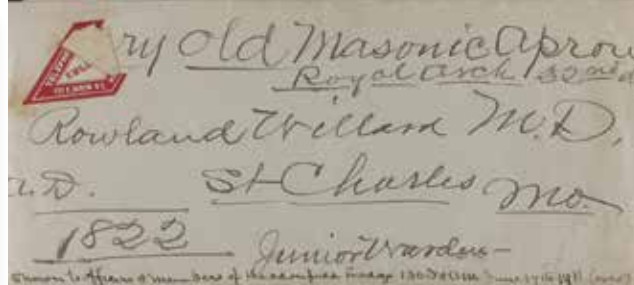 ry Old Masonic Apron
Royal Arch 32nd
Rowland Willard M.D.
A.D. St Charles Mo.
1822 Junior Warden
Shown to officers & members of the Lodge June 17th 1911 (over)